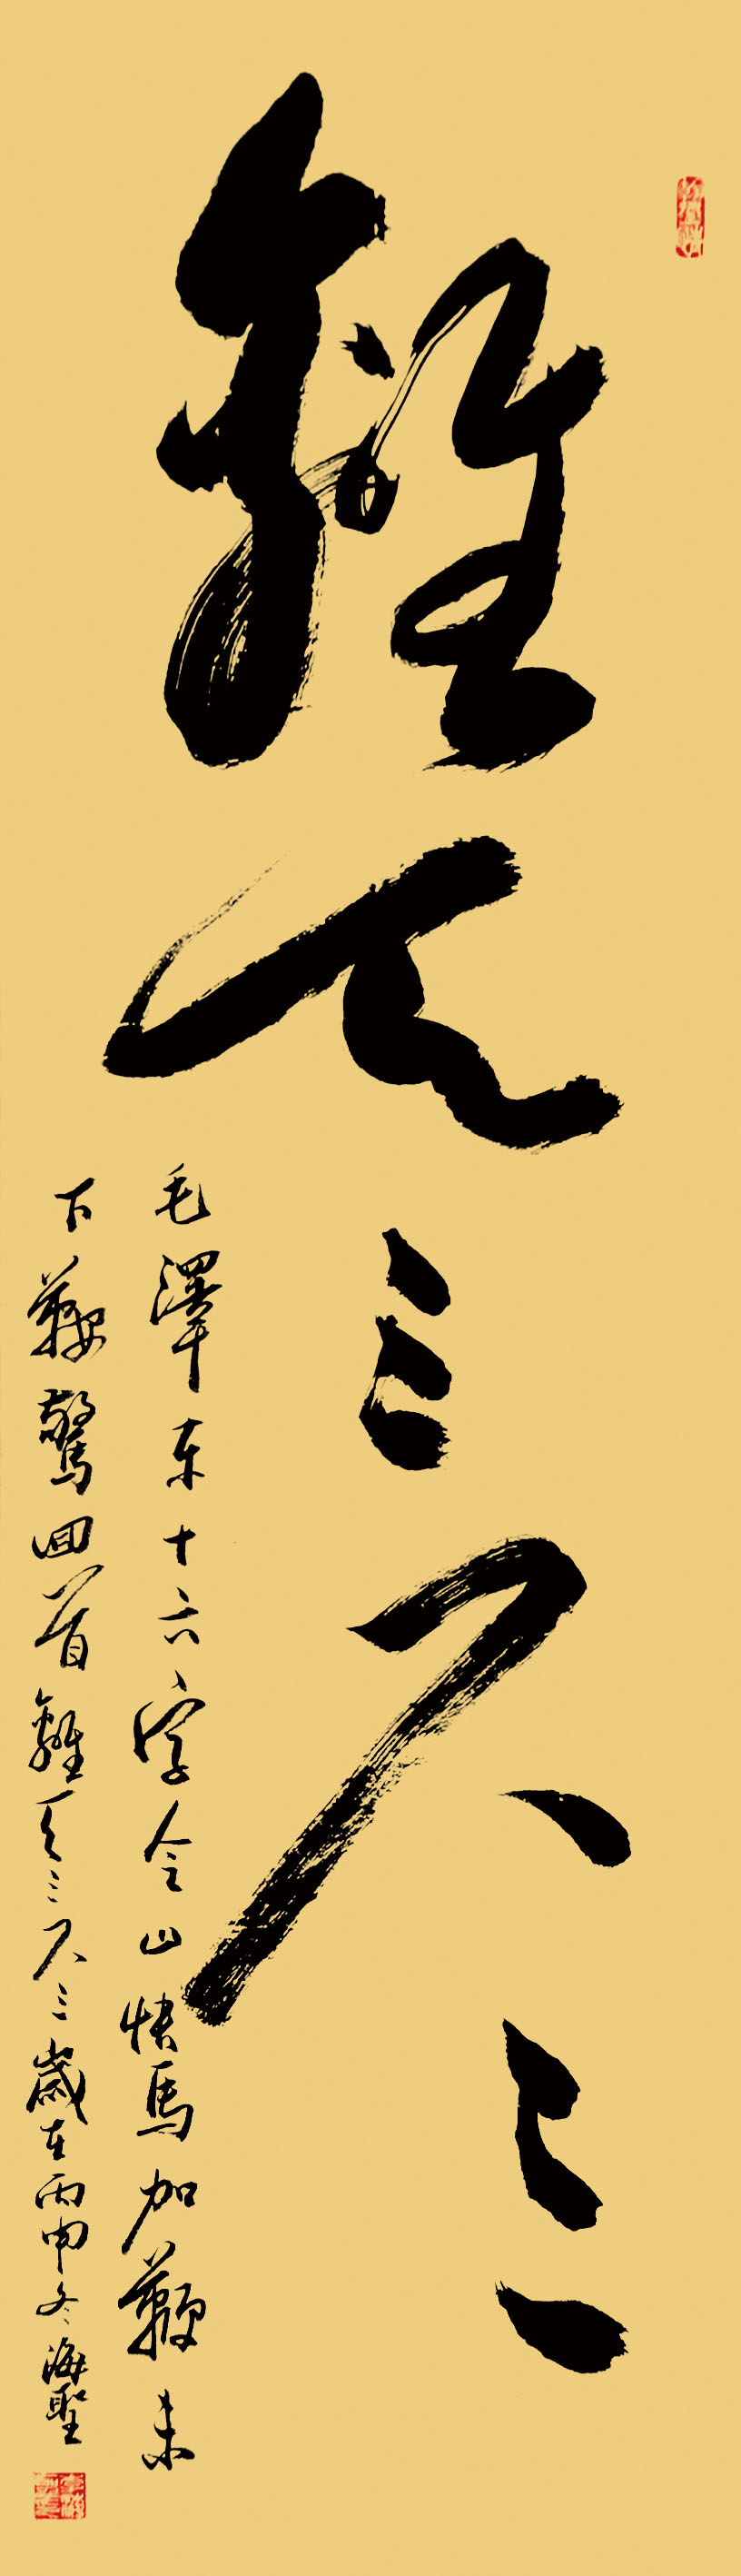 離天三尺三
毛澤东十六字令山快馬加鞭未
下鞍驚回首離天三尺三歲在丙申冬海聖